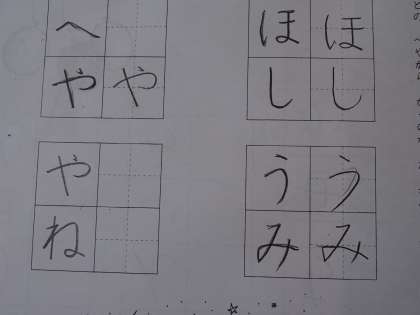 ほし
ほし
や
へや
うみ
うみ
やね